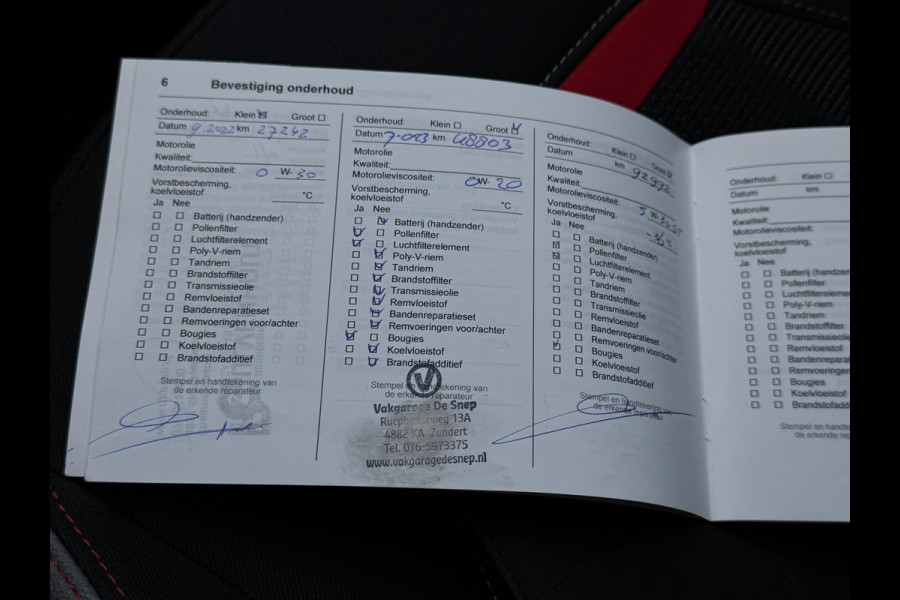 6 Bevestiging onderhoud
Onderhoud: Klein Groot
Datum 9.2022 km 27242
Motorolie
Kwaliteit:
Motorolieviscositeit: 0 W- 30
Vorstbescherming,
koelvloeistof °C
Ja Nee
Batterij (handzender)
Pollenfilter
Luchtfilterelement
Poly-V-riem
Tandriem
Brandstoffilter
Transmissieolie
Remvloeistof
Bandenreparatieset
Remvoeringen voor/achter
Bougies
Koelvloeistof
Brandstofadditief
Stempel en handtekening van
de erkende reparateur
Onderhoud: Klein Groot
Datum 7-023 km 48803
Motorolie
Kwaliteit:
Motorolieviscositeit: 0W- 20
Vorstbescherming,
koelvloeistof °C
Ja Nee
Batterij (handzender)
Pollenfilter
Luchtfilterelement
Poly-V-riem
Tandriem
Brandstoffilter
Transmissieolie
Remvloeistof
Bandenreparatieset
Remvoeringen voor/achter
Bougies
Koelvloeistof
Brandstofadditief
Stempel en handtekening van
de erkende reparateur
Vakgarage De Snep
Rucphenseweg 13A
4882 KA Zundert
Tel. 076-5973375
www.vakgaragedesnep.nl
Onderhoud: Klein Groot
Datum km 92992
Motorolie
Kwaliteit:
Motorolieviscositeit: 5 W-30
Vorstbescherming,
koelvloeistof
Ja Nee
Batterij (handzender)
Pollenfilter
Luchtfilterelement
Poly-V-riem
Tandriem
Brandstoffilter
Transmissieolie
Remvloeistof
Bandenreparatieset
Remvoeringen voor/achter
Bougies
Koelvloeistof
Brandstofadditief
Stempel en handtekening van
de erkende reparateur
Onderhoud: Klein
Datum: km:
Motorolie
Kwaliteit:
Motorolieviscositeit:
Vorstbescherming,
koelvloeistof
Ja Nee
Batterij (handzen
Pollenfilter
Luchtfiltereleme
Poly-V-riem
Tandriem
Brandstoffilter
Transmissieolie
Remvloeistof
Bandenrepara
Remvoeringen
Bougies
Koelvloeistof
Brandstofadd
Stempel en handt
de erkende rep